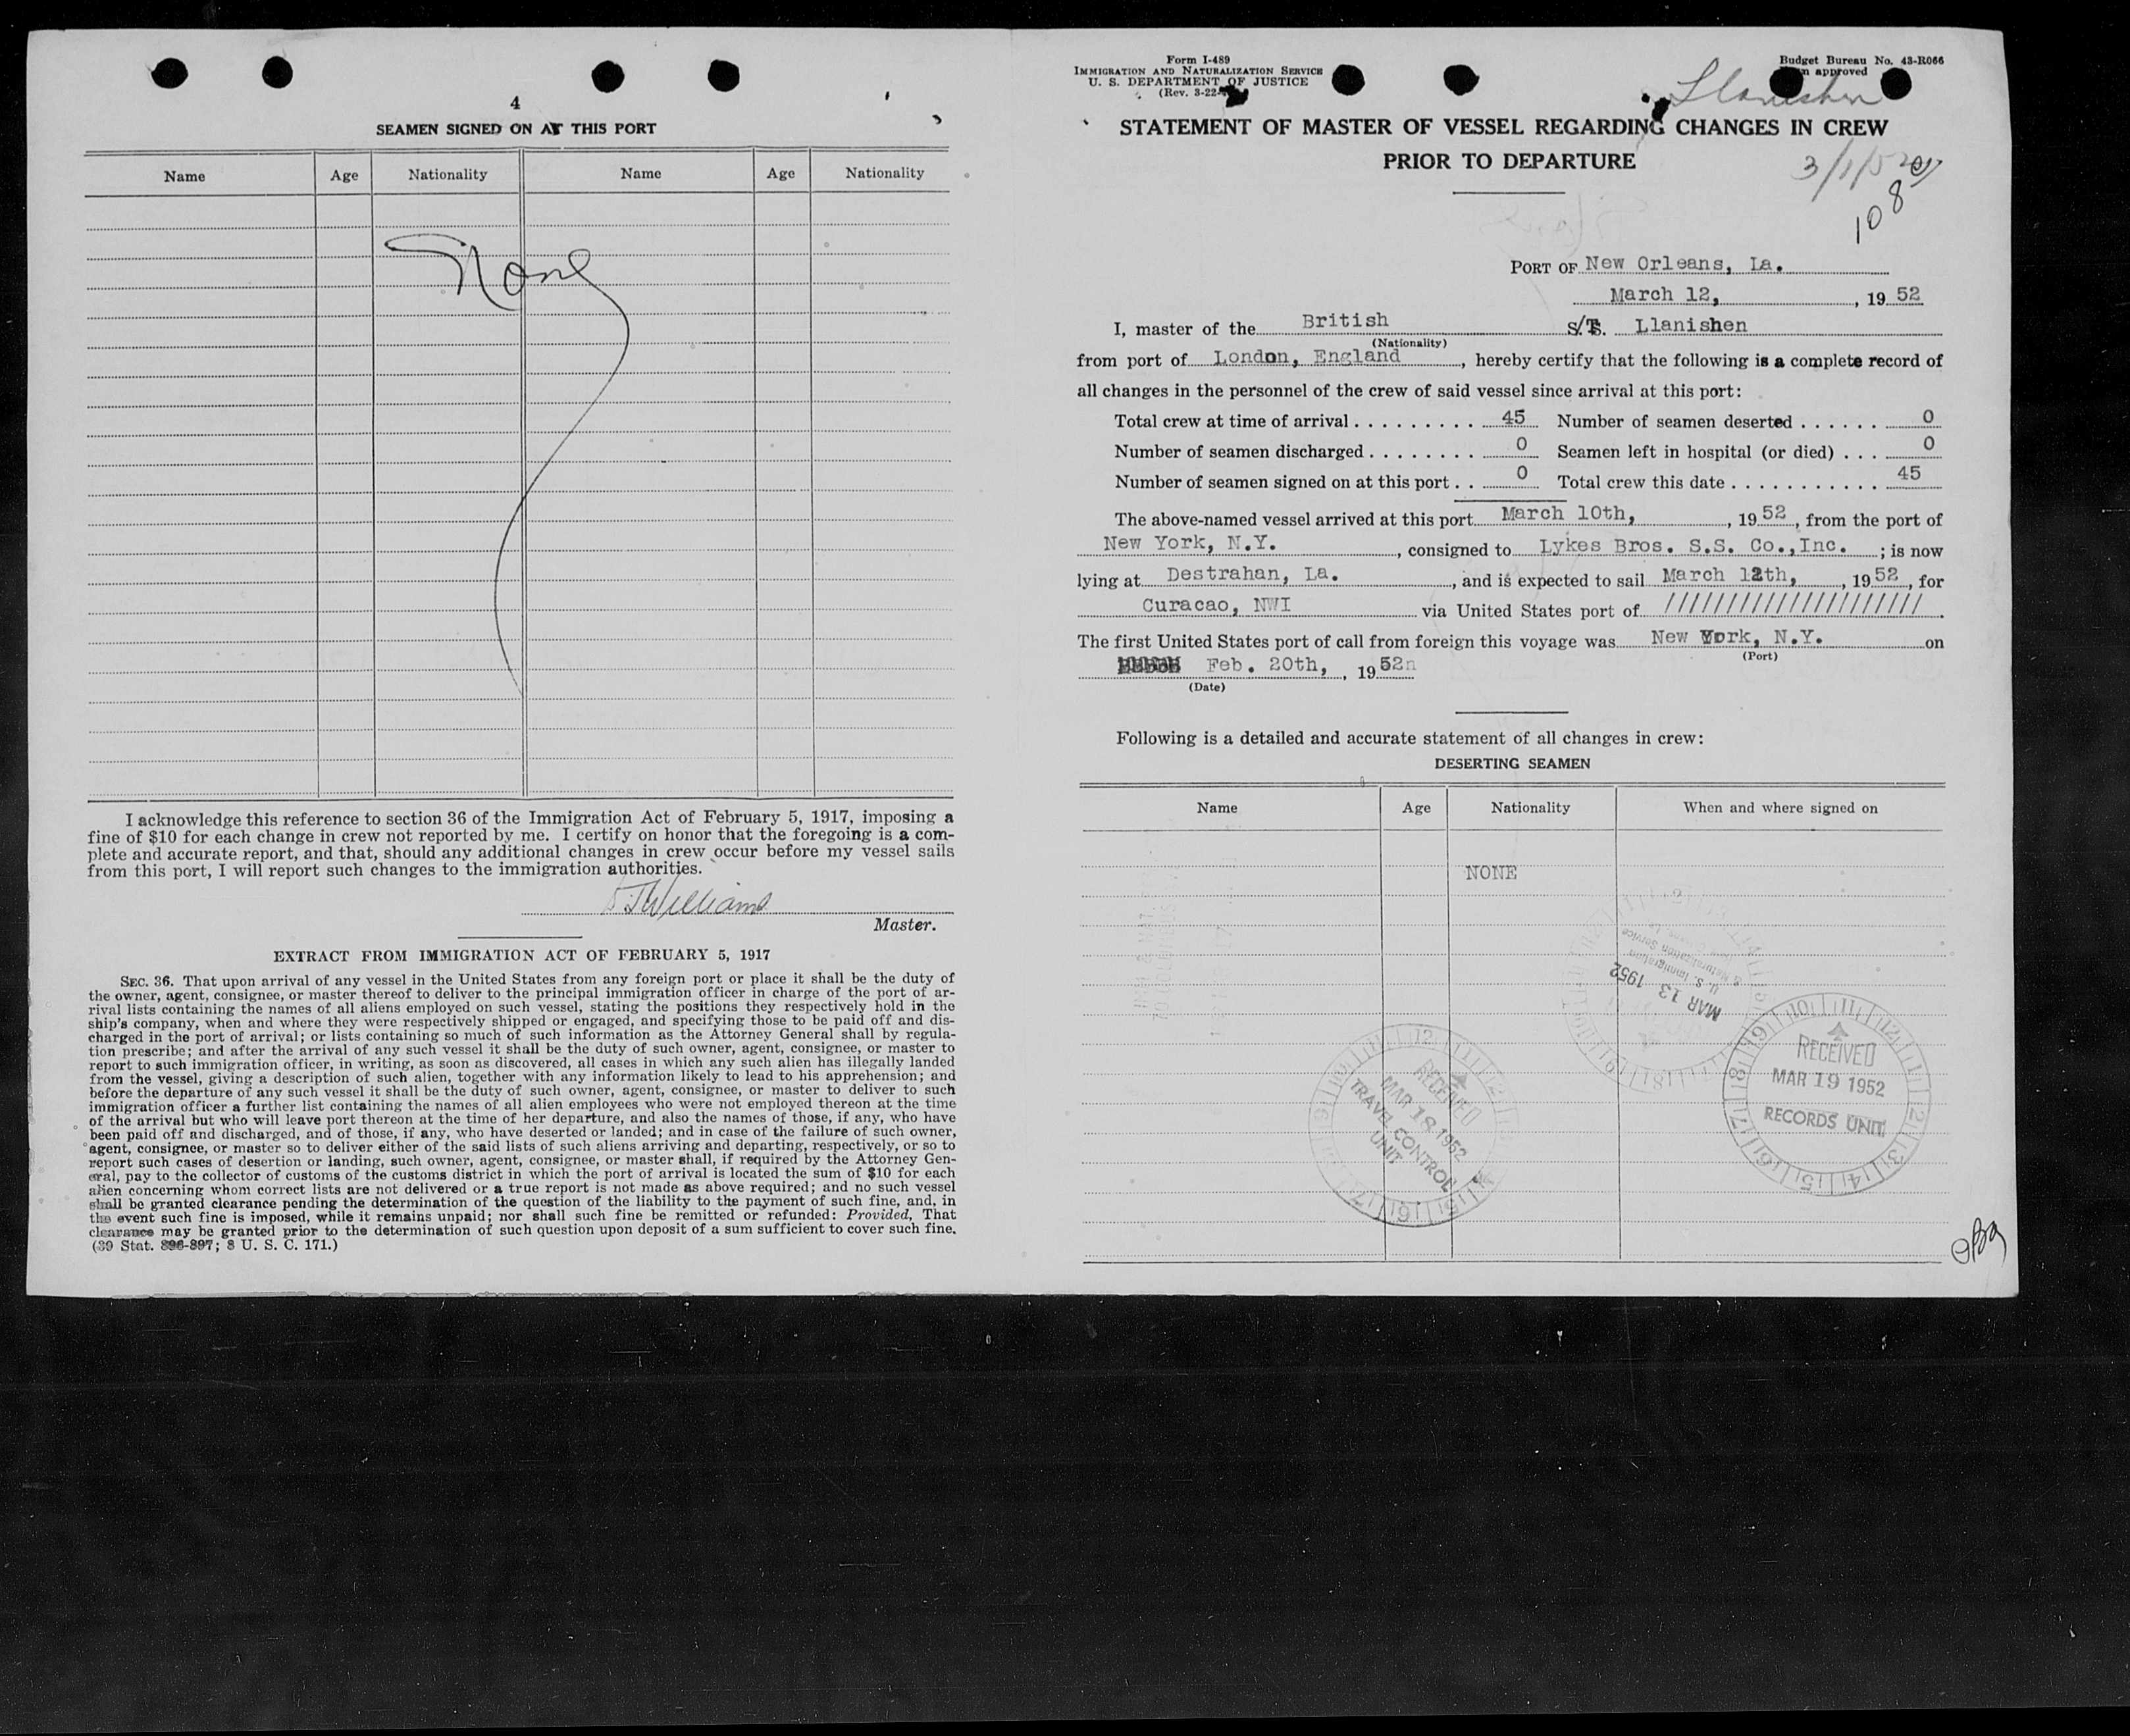 4
SEAMEN SIGNED ON AT THIS PORT
Name Age Nationality Name Age Nationality
None
I acknowledge this reference to section 36 of the Immigration Act of February 5, 1917, imposing a
fine of $10 for each change in crew not reported by me. I certify on honor that the foregoing is a com-
plete and accurate report, and that, should any additional changes in crew occur before my vessel sails
from this port, I will report such changes to the immigration authorities.
Williams
Master.
EXTRACT FROM IMMIGRATION ACT OF FEBRUARY 5, 1917
SEC. 36. That upon arrival of any vessel in the United States from any foreign port or place it shall be the duty of
the owner, agent, consignee, or master thereof to deliver to the principal immigration officer in charge of the port of ar-
rival lists containing the names of all aliens employed on such vessel, stating the positions they respectively hold in the
ship's company, when and where they were respectively shipped or engaged, and specifying those to be paid off and dis-
charged in the port of arrival; or lists containing so much of such information as the Attorney General shall by regula-
tion prescribe; and after the arrival of any such vessel it shall be the duty of such owner, agent, consignee, or master to
report to such immigration officer, in writing, as soon as discovered, all cases in which any such alien has illegally landed
from the vessel, giving a description of such alien, together with any information likely to lead to his apprehension; and
before the departure of any such vessel it shall be the duty of such owner, agent, consignee, or master to deliver to such
immigration officer a further list containing the names of all alien employees who were not employed thereon at the time
of the arrival but who will leave port thereon at the time of her departure, and also the names of those, if any, who have
been paid off and discharged, and of those, if any, who have deserted or landed; and in case of the failure of such owner,
agent, consignee, or master so to deliver either of the said lists of such aliens arriving and departing, respectively, or so to
report such cases of desertion or landing, such owner, agent, consignee, or master shall, if required by the Attorney Gen-
eral, pay to the collector of customs of the customs district in which the port of arrival is located the sum of $10 for each
alien concerning whom correct lists are not delivered or a true report is not made as above required; and no such vessel
shall be granted clearance pending the determination of the question of the liability to the payment of such fine, and, in
the event such fine is imposed, while it remains unpaid; nor shall such fine be remitted or refunded: Provided, That
clearance may be granted prior to the determination of such question upon deposit of a sum sufficient to cover such fine.
(39 Stat. 896-897; 8 U. S. C. 171.)
Form I-489
IMMIGRATION AND NATURALIZATION SERVICE
U. S. DEPARTMENT OF JUSTICE
(Rev. 3-22-
Budget Bureau No. 43-R066
approved
Llanishen
STATEMENT OF MASTER OF VESSEL REGARDING CHANGES IN CREW
PRIOR TO DEPARTURE
3/1/52
108
PORT OF New Orleans, La.
March 12, , 19 52
I, master of the British S/S. Llanishen
(Nationality)
from port of London, England , hereby certify that the following is a complete record of
all changes in the personnel of the crew of said vessel since arrival at this port:
Total crew at time of arrival . . . . . . . . . 45 Number of seamen deserted . . . . . . 0
Number of seamen discharged . . . . . . . . 0 Seamen left in hospital (or died) . . . 0
Number of seamen signed on at this port . . 0 Total crew this date . . . . . . . . . . . 45
The above-named vessel arrived at this port March 10th, , 19 52 , from the port of
New York, N.Y. , consigned to Lykes Bros. S.S. Co.,Inc. ; is now
lying at Destrahan, La. , and is expected to sail March 12th, , 19 52 , for
Curacao, NWI via United States port of //////////////////////
The first United States port of call from foreign this voyage was New York, N.Y. on
(Port)
Feb. 20th, , 19 52
(Date)
Following is a detailed and accurate statement of all changes in crew:
DESERTING SEAMEN
Name Age Nationality When and where signed on
NONE
U. S. Immigration
& Naturalization Service
MAR 13 1952
RECEIVED
MAR 19 1952
RECORDS UNIT
RECEIVED
MAR 18 1952
TRAVEL CONTROL
UNIT